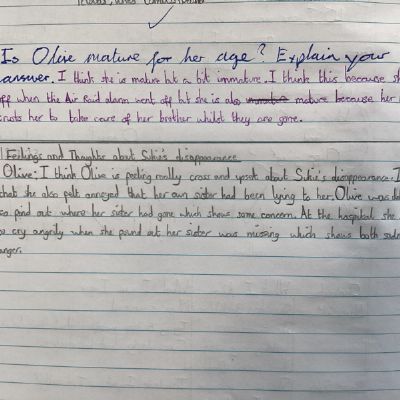 Is Olive mature for her age? Explain your
answer. I think she is mature bit a bit immature. I think this because s
off when the Air Raid alarm went off bt she is also mature because her
trusts her to take care of her brother whilst they are gone.
Feelings and Thoughts about Sukie's disappearance
Olive: I think Olive is feeling really cross and upset about Sukie's disappearance. I
that she also felt annoyed that her own sister had been lying to her. Olive was
to find out where her sister had gone which shows some concern. At the hospital she
to cry angrily when she found out her sister was missing which shows both
anger.